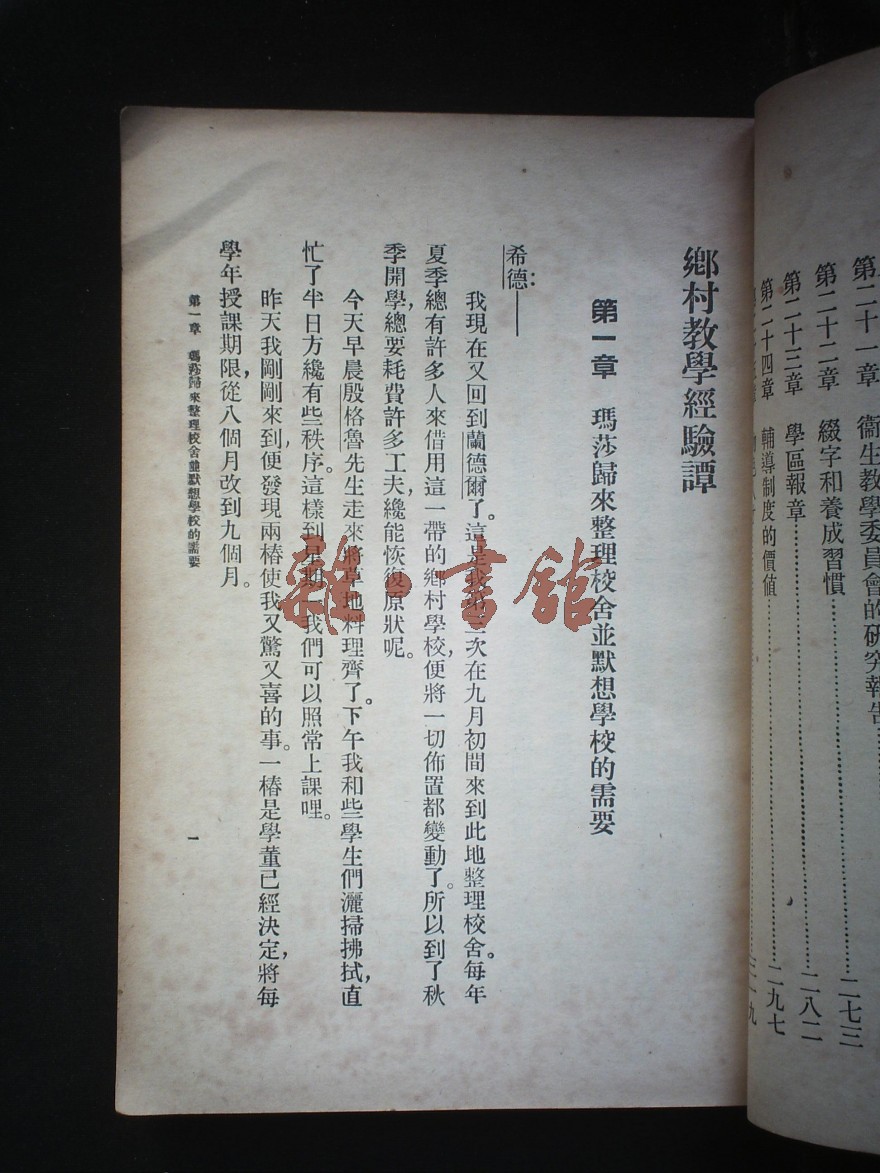 第二十一章　衞生教學委員會的研究報告……二七三
第二十二章　綴字和養成習慣……二八二
第二十三章　學區報章……
第二十四章　輔導制度的價値……二九七
鄉村教學經驗譚
第一章　瑪莎歸來整理校舍並默想學校的需要
希德：——
我現在又回到蘭德爾了。這是我第三次在九月初間來到此地整理校舍。每年
夏季總有許多人來借用這一帶的鄉村學校，便將一切佈置都變動了。所以到了秋
季開學，總要耗費許多工夫纔能恢復原狀呢。
今天早晨殷格魯先生走來將草地料理齊了。下午我和些學生們灑掃拂拭，直
忙了半日方纔有些秩序。這樣到星期一我們可以照常上課哩。
昨天我剛剛來到，便發現兩樁使我又驚又喜的事。一樁是學董已經決定，將每
學年授課期限，從八個月改到九個月。
第一章　瑪莎歸來整理校舍並默想學校的需要
一
雜·書館